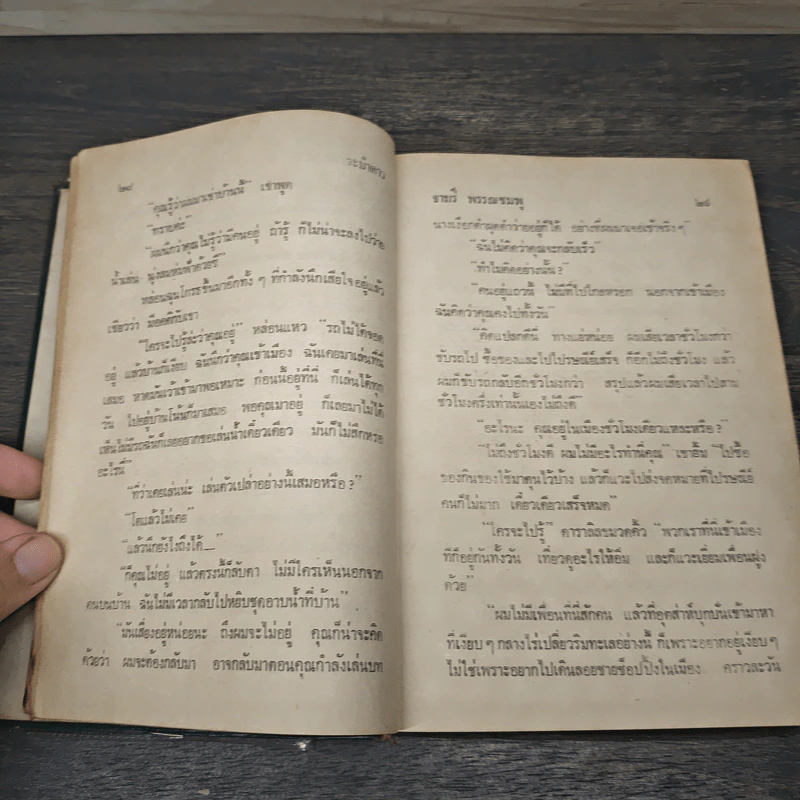 ๒๘
ระบำดาว
"คุณรู้ว่าผมมาเช่าบ้านนี้" เขาพูด
"ทราบค่ะ"
"ผมนึกว่าคุณไม่รู้ว่ามีคนอยู่ ถ้ารู้ ก็ไม่น่าจะลงไปว่าย
น้ำเล่น นุ่งลมห่มฟ้าด้วยซี"
หล่อนฉุนโกรธขึ้นมาอีกทั้ง ๆ ที่กำลังนึกเสียใจอยู่แล้ว
เชียวว่า มีอคติกับเขา
"ใครจะไปรู้ล่ะว่าคุณอยู่" หล่อนแหว "รถไม่ได้จอด
อยู่ แล้วบ้านก็เงียบ ฉันนึกว่าคุณเข้าเมือง ฉันเคยมาเล่นที่นี่
เสมอ หาดมันเว้าเข้ามาพอเหมาะ ก่อนนี้อยู่ที่นี่ ก็เล่นได้ทุก
วัน ไปอยู่บ้านโน้นก็มาเสมอ พอคุณมาอยู่ ก็เลยมาไม่ได้
เห็นไม่มีรถฉันก็เลยอยากขอเล่นน้ำเดี๋ยวเดียว มันก็ไม่สึกหรอ
อะไรนี่"
"ที่ว่าเคยเล่นน่ะ เล่นตัวเปล่าอย่างนี้เสมอหรือ?"
"โตแล้วไม่เคย"
"แล้วนึกยังไงถึงได้....."
"ก็คุณไม่อยู่ แล้วตรงนี้ก็ลับตา ไม่มีใครเห็นนอกจาก
คนบนบ้าน ฉันไม่มีเวลากลับไปหยิบชุดอาบน้ำที่บ้าน"
"มันเสี่ยงอยู่หน่อยนะ ถึงผมจะไม่อยู่ คุณก็น่าจะคิด
ด้วยว่า ผมจะต้องกลับมา อาจกลับมาตอนคุณกำลังเล่นบท
ชามรี พรรณชมพู
๒๙
นางเงือกดำผุดดำว่ายอยู่ก็ได้ อย่างที่ผมมาเจอเข้าจริง ๆ"
"ฉันไม่คิดว่าคุณจะกลับเร็ว"
"ทำไมคิดอย่างนั้น?
"คนอยู่แถวนี้ ไม่มีที่ไปไกลหรอก นอกจากเข้าเมือง
ฉันคิดว่าคุณคงไปทั้งวัน"
"คิดแปลกดีนี่ ทางแย่หน่อย ผมเสียเวลาชั่วโมงกว่า
ขับรถไป ซื้อของและไปไปรษณีย์เสร็จ ก็อีกไม่ถึงชั่วโมง แล้ว
ผมก็ขับรถกลับอีกชั่วโมงกว่า สรุปแล้วผมเสียเวลาไปสาม
ชั่วโมงครึ่งเท่านั้นเองไม่ถึงดี"
"อะไรนะ คุณอยู่ในเมืองชั่วโมงเดียวแหละหรือ?"
"ไม่ถึงชั่วโมงดี ผมไม่มีอะไรทำนี่คุณ" เขายิ้ม "ไปซื้อ
ของกินของใช้มาตุนไว้บ้าง แล้วก็แวะไปส่งจดหมายที่ไปรษณีย์
คนก็ไม่มาก เดี๋ยวเดียวเสร็จหมด"
"ใครจะไปรู้" ดาราลัลขมวดคิ้ว "พวกเราที่นี่เข้าเมือง
ทีก็อยู่กันทั้งวัน เที่ยวดูอะไรให้อิ่ม และก็แวะเยี่ยมเพื่อนฝูง
ด้วย"
"ผมไม่มีเพื่อนที่นี่สักคน แล้วที่อุตส่าห์บุกบั่นเข้ามาหา
ที่เงียบ ๆ กลางไร่เปลี่ยวริมทะเลอย่างนี้ ก็เพราะอยากอยู่เงียบ ๆ
ไม่ใช่เพราะอยากไปเดินลอยชายช็อปปิ้งในเมือง คราวละวัน